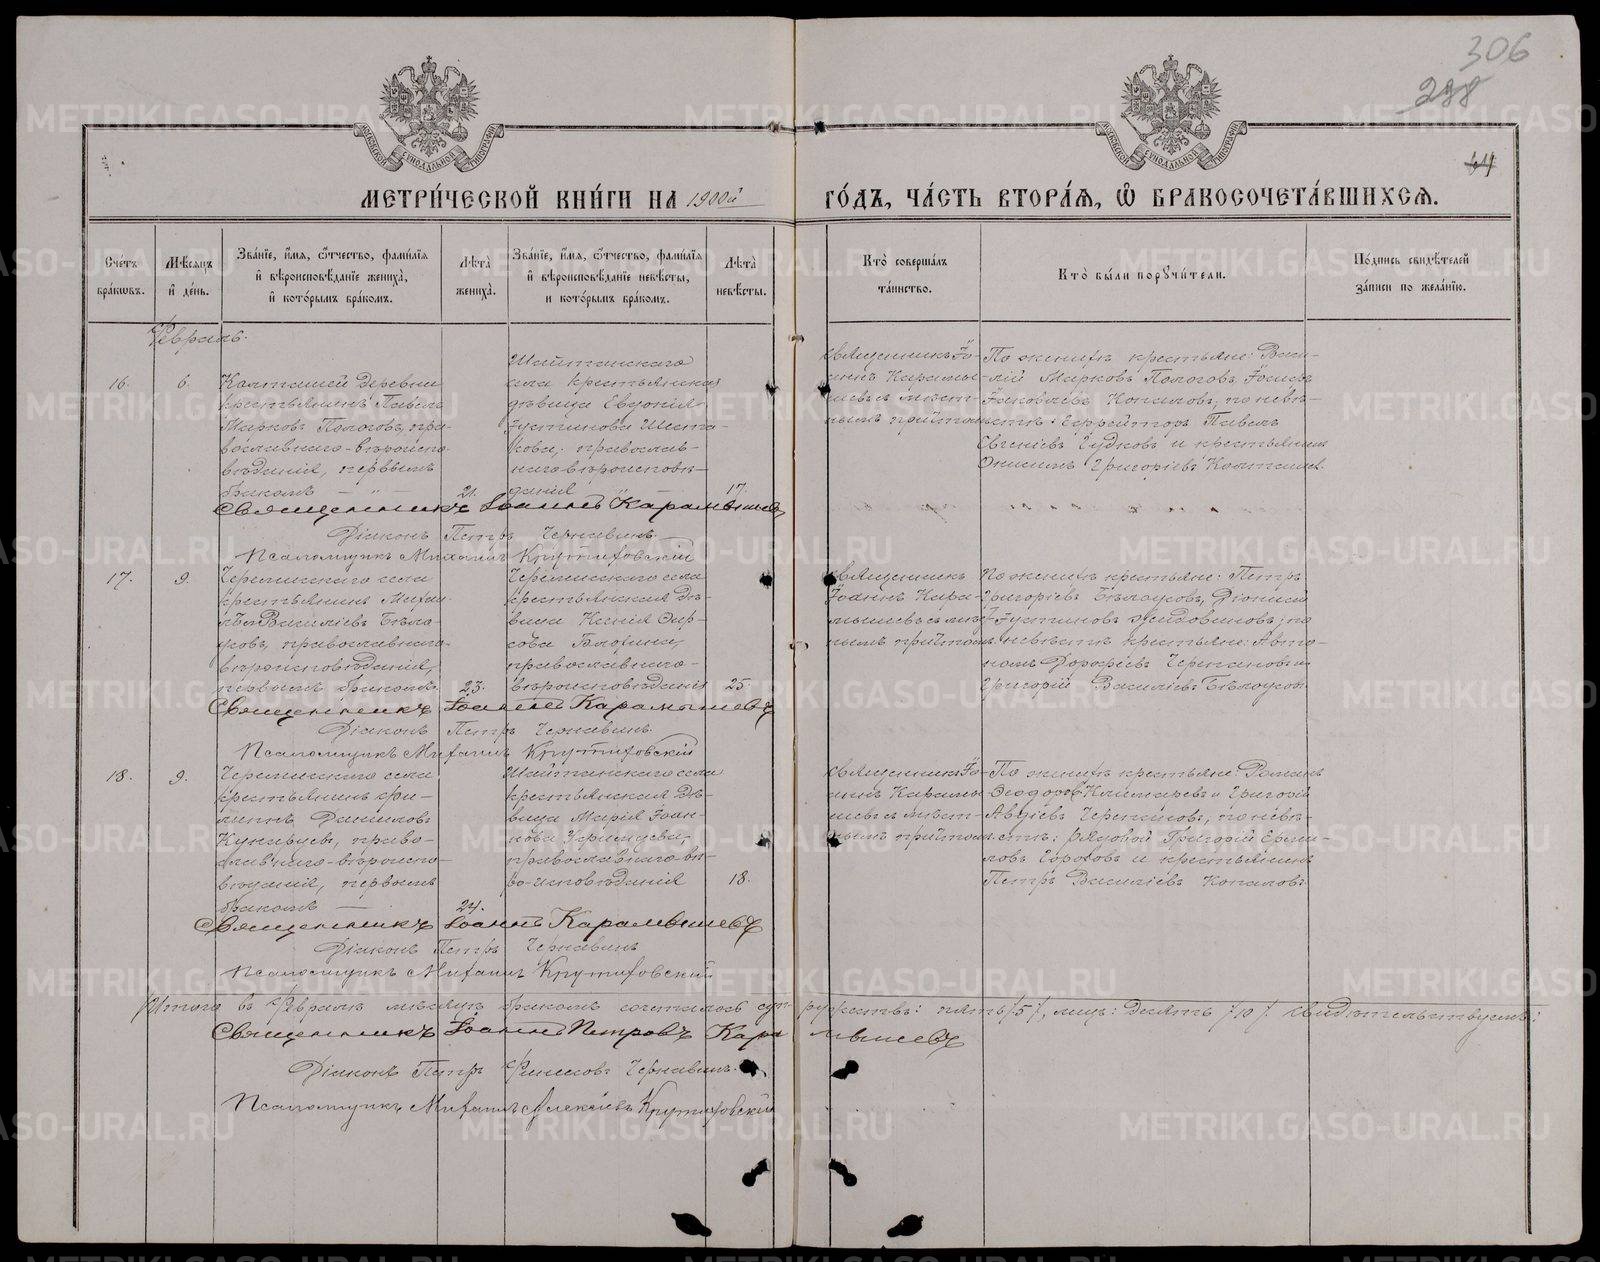 306
298
44
МЕТРИ́ЧЕСКОЙ КНИ́ГИ НА 1900й ГО́ДЪ, ЧА́СТЬ ВТОРА́Я, Ѽ БРАКОСОЧЕТА́ВШИХСЯ.
Сче́тъ бра́ковъ.
Мѣ́сяцъ и́ де́нь.
Зва́нїе, и́мя, ѻ́тчество, фами́лїя и́ вѣроисповѣ́данїе жениха̀, и́ кото́рымъ бра́комъ.
Лѣ́та̀ жениха̀.
Зва́нїе, и́мя, ѻ́тчество, фами́лїя и́ вѣроисповѣ́данїе невѣ́сты, и́ кото́рымъ бра́комъ.
Лѣ́та̀ невѣ́сты.
Кто̀ соверша́лъ та́инство.
Кто̀ бы́ли порꙋчи́тели.
По́дпись свидѣ́телей за́писи по жела́нїю.
Февраль.
16.
6.
Колташей деревни
крестьянинъ Павелъ
Марковъ Пологовъ, пра-
вославнаго вѣроиспо-
вѣданія, первымъ
бракомъ — „ —
21.
Шайтанскаго
села крестьянская
дѣвица Евдокія
Іустинова Шеста-
кова, православ-
наго вѣроисповѣ-
данія
17.
Священникъ Іо-
аннъ Карамы-
шевъ съ мѣст-
нымъ причтомъ
По женихѣ крестьяне: Васи-
лій Марковъ Пологовъ, Іосифъ
Іаковлевъ Копаловъ, по невѣ-
стѣ: Ефрейторъ Павелъ
Евгеніевъ Гудковъ и крестьянинъ
Онисимъ Григоріевъ
Священникъ Іоаннъ Карамышевъ
Діаконъ Петръ Чернавинъ.
Псаломщикъ Михаилъ Крутиховскій
17.
9.
Черемисскаго села
крестьянинъ Миха-
илъ Василіевъ Бѣло-
усовъ, православнаго
вѣроисповѣданія,
первымъ бракомъ.
23.
Черемисскаго села
крестьянская дѣ-
вица Ксенія Фир-
сова
православнаго
вѣроисповѣданія
25.
Священникъ
Іоаннъ Кара-
мышевъ съ мѣст-
нымъ причтомъ
По женихѣ крестьяне: Петръ
Григоріевъ Бѣлоусовъ, Діонисій
Іустиновъ по
невѣстѣ крестьяне: Авто-
номъ Дорофеевъ
Григорій Василіевъ Бѣлоусовъ.
Священникъ Іоаннъ Карамышевъ
Діаконъ Петръ Чернавинъ.
Псаломщикъ Михаилъ Крутиховскій
18.
9.
Черемисскаго села
крестьянинъ Фи-
липпъ Даниловъ
право-
славнаго вѣроиспо-
вѣданія, первымъ
бракомъ —
24.
Шайтанскаго села
крестьянская дѣ-
вица Марія Іоан-
нова
православнаго вѣ-
роисповѣданія
18.
Священникъ Іо-
аннъ Карамы-
шевъ съ мѣст-
нымъ причтомъ
По женихѣ крестьяне: Романъ
Ѳеодоровъ и Григорій
Авдіевъ по невѣ-
стѣ: рядовой Григорій Ерми-
ловъ и крестьянинъ
Петръ Василіевъ Копаловъ.
Священникъ Іоаннъ Карамышевъ
Діаконъ Петръ Чернавинъ
Псаломщикъ Михаилъ Крутиховскій
Итого въ Февралѣ мѣсяцѣ бракомъ сочеталось суп-ружествъ: пять /5/, лицъ: десять /10/. свидѣтельствуемъ:
Священникъ Іоаннъ Петровъ Карамышевъ
Діаконъ Петръ Чернавинъ.
Псаломщикъ Михаилъ Алексѣевъ Крутиховскій
METRIKI.GASO-URAL.RU